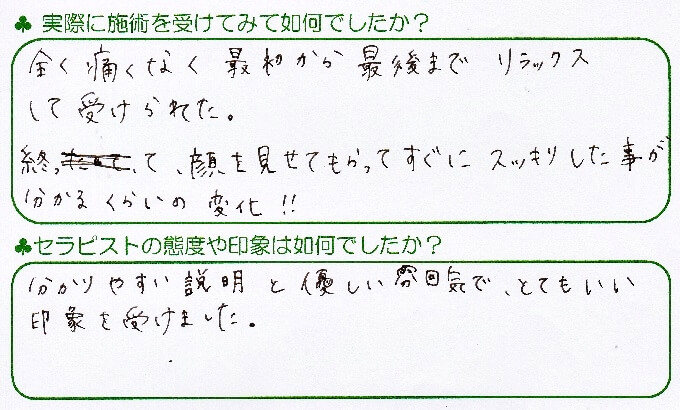 ♣ 実際に施術を受けてみて如何でしたか？
全く痛くなく最初から最後までリラックス
して受けられた。
終って、顔を見せてもらってすぐにスッキリした事が
分かるくらいの変化!!
♣セラピストの態度や印象は如何でしたか？
分かりやすい説明と優しい雰囲気で、とてもいい
印象を受けました。